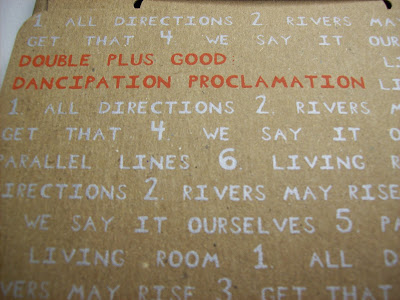 1. ALL DIRECTIONS 2. RIVERS MAY
GET THAT 4. WE SAY IT OUR
DOUBLE PLUS GOOD: LI
DANCIPATION PROCLAMATION LI
1. ALL DIRECTIONS 2. RIVERS M
GET THAT 4. WE SAY IT O
PARALLEL LINES 6. LIVING R
DIRECTIONS 2. RIVERS MAY RISE
WE SAY IT OURSELVES 5. PA
LIVING ROOM 1. ALL D
VERS MAY RISE 3. GET THAT